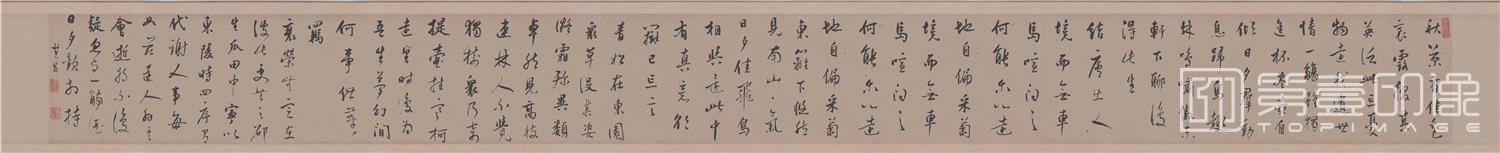 秋菊有佳色
裛露掇其
英泛此忘憂
物遠我遺世
情一觴雖獨
進杯盡壺自
傾日夕群動
息歸鳥趨
林鳴嘯傲東
軒下聊復
得此生
結廬在人
境而無車
馬喧問君
何能爾心遠
地自偏采菊
境而無車
馬喧問君
何能爾心遠
地自偏采菊
東籬下悠然
見南山山氣
日夕佳飛鳥
相與還此中
有真意欲
辯已忘言
青松在東園
衆草沒其姿
凝霜殄異類
卓然見高枝
連林人不覺
獨樹衆乃奇
提壺挂寒柯
遠望時復為
吾生夢幻間
何事紲塵
羈
衰榮無定在
彼此更共之邵
生瓜田中寧似
東陵時四序有
代謝人事每
如茲達人解其
會逝將不復
疑忽與一觴酒
日夕歡相持
其昌
第壹印象
TOPIMAGE